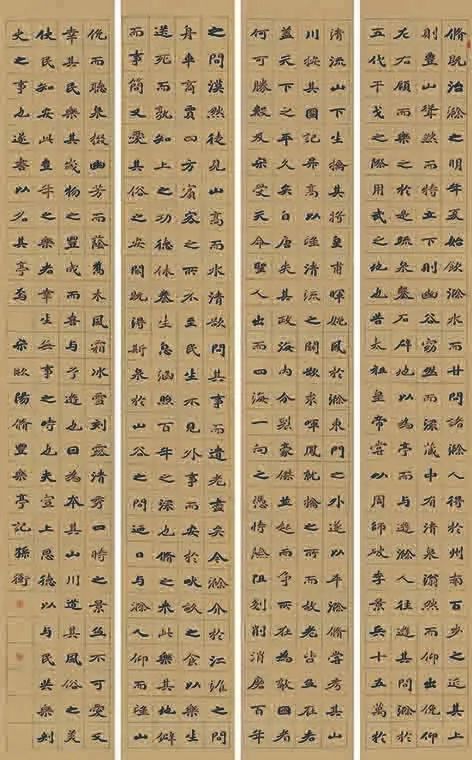 脩既治滁之明年夏始飲滁水而甘問諸滁人得於州南百步之遠其上
則豐山聳然而特立下則幽谷窈然而深藏中有清泉滃然而仰出俯仰
左右顧而樂之於是疏泉鑿石辟地以為亭而與滁人往遊其間滁於
五代干戈之際用武之地也昔太祖皇帝嘗以周師破李景兵十五萬於
清流山下生擒其將皇甫暉姚鳳於滁東門之外遂以平滁脩嘗考其山
川按其圖記升高以望清流之關欲求暉鳳就擒之所而故老皆無在者
蓋天下之平久矣自唐失其政海內分裂豪傑並起而爭所在為敵國者
何可勝數及宋受天命聖人出而四海一向之憑恃險阻剗削消磨百年
之間漠然徒見山高而水清欲問其事而遺老盡矣今滁介於江淮之間
舟車商賈四方賓客之所不至民生不見外事而安於畎畝衣食以樂生
送死而孰知上之功德休養生息涵煦百年之深也脩之來此樂其地僻
而事簡又愛其俗之安閒既得斯泉於山谷之間乃日與滁人仰而望山
俛而聽泉掇幽芳而蔭喬木風霜冰雪刻露清秀四時之景無不可愛又
幸其民樂其歲物之豐成而喜與予遊也因為本其山川道其風俗之美
使民知安此豐年之樂者幸生無事之時也夫宣上恩德以與民共樂刺
史之事也遂書以名其亭焉 宋歐陽脩豐樂亭記 孫衛